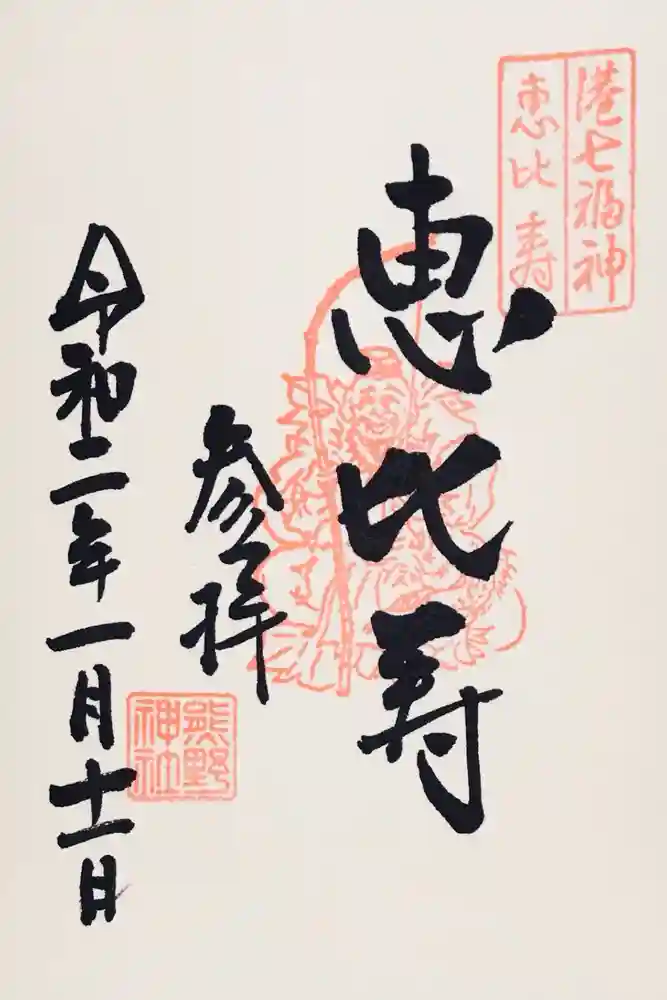 港七福神
恵比寿
恵比寿
参拝
熊野
神社
令和二年一月十一日